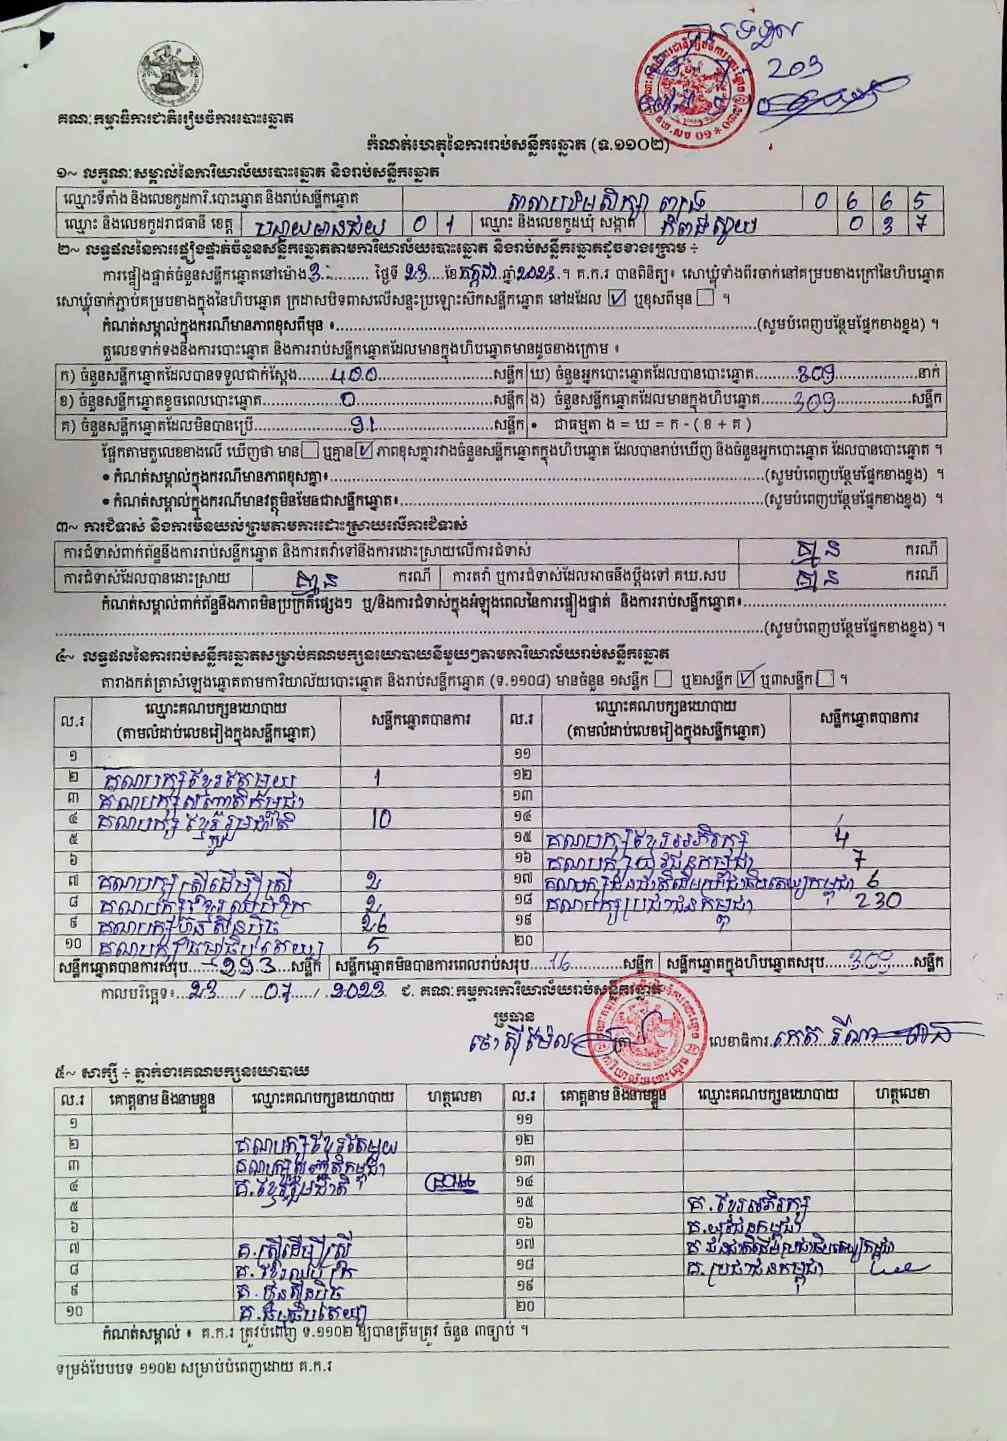 ការទទួល
203
គណៈកម្មាធិការជាតិរៀបចំការបោះឆ្នោត
កំណត់ហេតុនៃការរាប់សន្លឹកឆ្នោត (ទ.១១០២)
១~ លក្ខណៈសម្គាល់នៃការិយាល័យបោះឆ្នោត និងរាប់សន្លឹកឆ្នោត
ឈ្មោះទីតាំង និងលេខកូដការិ.បោះឆ្នោត និងរាប់សន្លឹកឆ្នោត 0 6 6 5
ឈ្មោះ និងលេខកូដរាជធានី ខេត្ត បន្ទាយមានជ័យ 0 1 ឈ្មោះ និងលេខកូដឃុំ សង្កាត់ កំពង់ស្វាយ 0 3 7
២~ លទ្ធផលនៃការផ្ទៀងផ្ទាត់ចំនួនសន្លឹកឆ្នោតតាមការិយាល័យបោះឆ្នោត និងរាប់សន្លឹកឆ្នោតដូចខាងក្រោម ÷
ការផ្ទៀងផ្ទាត់ចំនួនសន្លឹកឆ្នោតនៅម៉ោង 3 ថ្ងៃទី 23 ខែ កក្កដា ឆ្នាំ 2023 ។ គ.ក.រ បានពិនិត្យ៖ សោឃ្លុំទាំងពីរចាក់នៅគម្របខាងក្រៅនៃហិបឆ្នោត
សោឃ្លុំចាក់ភ្ជាប់គម្របខាងក្នុងនៃហិបឆ្នោត ក្រដាសបិទពាសលើសន្ទះប្រឡោះស៊កសន្លឹកឆ្នោត នៅដដែល ☑ ឬខុសពីមុន ☐ ។
កំណត់សម្គាល់ក្នុងករណីមានភាពខុសពីមុន ៖ (សូមបំពេញបន្ថែមផ្នែកខាងខ្នង) ។
តួលេខទាក់ទងនឹងការបោះឆ្នោត និងការរាប់សន្លឹកឆ្នោតដែលមានក្នុងហិបឆ្នោតមានដូចខាងក្រោម ៖
ក) ចំនួនសន្លឹកឆ្នោតដែលបានទទួលជាក់ស្តែង 400 សន្លឹក ឃ) ចំនួនអ្នកបោះឆ្នោតដែលបានបោះឆ្នោត 309 នាក់
ខ) ចំនួនសន្លឹកឆ្នោតខូចពេលបោះឆ្នោត 0 សន្លឹក ង) ចំនួនសន្លឹកឆ្នោតដែលមានក្នុងហិបឆ្នោត 309 សន្លឹក
គ) ចំនួនសន្លឹកឆ្នោតដែលមិនបានប្រើ 91 សន្លឹក • ជាធម្មតា ង = ឃ = ក - ( ខ + គ )
ផ្អែកតាមតួលេខខាងលើ ឃើញថា មាន ☐ ឬគ្មាន ☑ ភាពខុសគ្នារវាងចំនួនសន្លឹកឆ្នោតក្នុងហិបឆ្នោត ដែលបានរាប់ឃើញ និងចំនួនអ្នកបោះឆ្នោត ដែលបានបោះឆ្នោត ។
• កំណត់សម្គាល់ក្នុងករណីមានភាពខុសគ្នា៖ (សូមបំពេញបន្ថែមផ្នែកខាងខ្នង) ។
• កំណត់សម្គាល់ក្នុងករណីមានវត្ថុមិនមែនជាសន្លឹកឆ្នោត៖ (សូមបំពេញបន្ថែមផ្នែកខាងខ្នង) ។
៣~ ការជំទាស់ និងការមិនយល់ព្រមតាមការដោះស្រាយលើការជំទាស់
ការជំទាស់ពាក់ព័ន្ធនឹងការរាប់សន្លឹកឆ្នោត និងការតវ៉ាទៅនឹងការដោះស្រាយលើការជំទាស់ គ្មាន ករណី
ការជំទាស់ដែលបានដោះស្រាយ គ្មាន ករណី ការតវ៉ា ឬការជំទាស់ដែលអាចនឹងប្តឹងទៅ គឃ.សប គ្មាន ករណី
កំណត់សម្គាល់ពាក់ព័ន្ធនឹងភាពមិនប្រក្រតីផ្សេងៗ ឬ/និងការជំទាស់ក្នុងអំឡុងពេលនៃការផ្ទៀងផ្ទាត់ និងការរាប់សន្លឹកឆ្នោត៖
(សូមបំពេញបន្ថែមផ្នែកខាងខ្នង) ។
៤~ លទ្ធផលនៃការរាប់សន្លឹកឆ្នោតសម្រាប់គណបក្សនយោបាយនីមួយៗតាមការិយាល័យរាប់សន្លឹកឆ្នោត
តារាងកត់ត្រាសំឡេងឆ្នោតតាមការិយាល័យបោះឆ្នោត និងរាប់សន្លឹកឆ្នោត (ទ.១១០៨) មានចំនួន ១សន្លឹក ☐ ឬ២សន្លឹក ☑ ឬ៣សន្លឹក ☐ ។
ល.រ ឈ្មោះគណបក្សនយោបាយ (តាមលំដាប់លេខរៀងក្នុងសន្លឹកឆ្នោត) សន្លឹកឆ្នោតបានការ ល.រ ឈ្មោះគណបក្សនយោបាយ (តាមលំដាប់លេខរៀងក្នុងសន្លឹកឆ្នោត) សន្លឹកឆ្នោតបានការ
១ ១១
២ គណបក្សខ្មែរតែមួយ 1 ១២
៣ គណបក្សសញ្ជាតិកម្ពុជា ១៣
៤ គណបក្សខ្មែររួបរួមជាតិ 10 ១៤
៥ ១៥ គណបក្សខ្មែរអភិរក្ស 4
៦ ១៦ គណបក្សយុវជនកម្ពុជា 7
៧ គណបក្សស្រ្តីដើម្បីស្រ្តី 2 ១៧ គណបក្សជនជាតិដើមប្រជាធិបតេយ្យកម្ពុជា 6
៨ គណបក្សខ្មែរឈប់ក្រ 2 ១៨ គណបក្សប្រជាជនកម្ពុជា 230
៩ គណបក្សហ៊្វុនស៊ិនប៉ិច 26 ១៩
១០ គណបក្សធម្មាធិបតេយ្យ 5 ២០
សន្លឹកឆ្នោតបានការសរុប 293 សន្លឹក សន្លឹកឆ្នោតមិនបានការពេលរាប់សរុប 16 សន្លឹក សន្លឹកឆ្នោតក្នុងហិបឆ្នោតសរុប 309 សន្លឹក
កាលបរិច្ឆេទ៖ 23 / 07 / 2023 ជ. គណៈកម្មការការិយាល័យរាប់សន្លឹកឆ្នោត
ប្រធាន
លេខាធិការ
៥~ សាក្សី ÷ ភ្នាក់ងារគណបក្សនយោបាយ
ល.រ គោត្តនាម និងនាមខ្លួន ឈ្មោះគណបក្សនយោបាយ ហត្ថលេខា ល.រ គោត្តនាម និងនាមខ្លួន ឈ្មោះគណបក្សនយោបាយ ហត្ថលេខា
១ ១១
២ គណបក្សខ្មែរតែមួយ ១២
៣ គណបក្សសញ្ជាតិកម្ពុជា ១៣
៤ គ.ខ្មែររួបរួមជាតិ ១៤
៥ ១៥ គ.ខ្មែរអភិរក្ស
៦ ១៦ គ.យុវជនកម្ពុជា
៧ គ.ស្រ្តីដើម្បីស្រ្តី ១៧ គ.ជនជាតិដើមប្រជាធិបតេយ្យកម្ពុជា
៨ គ.ខ្មែរឈប់ក្រ ១៨ គ.ប្រជាជនកម្ពុជា
៩ គ.ហ៊្វុនស៊ិនប៉ិច ១៩
១០ គ.ធម្មាធិបតេយ្យ ២០
កំណត់សម្គាល់ ៖ គ.ក.រ ត្រូវបំពេញ ទ.១១០២ ឱ្យបានត្រឹមត្រូវ ចំនួន ៣ច្បាប់ ។
ទម្រង់បែបបទ ១១០២ សម្រាប់បំពេញដោយ គ.ក.រ